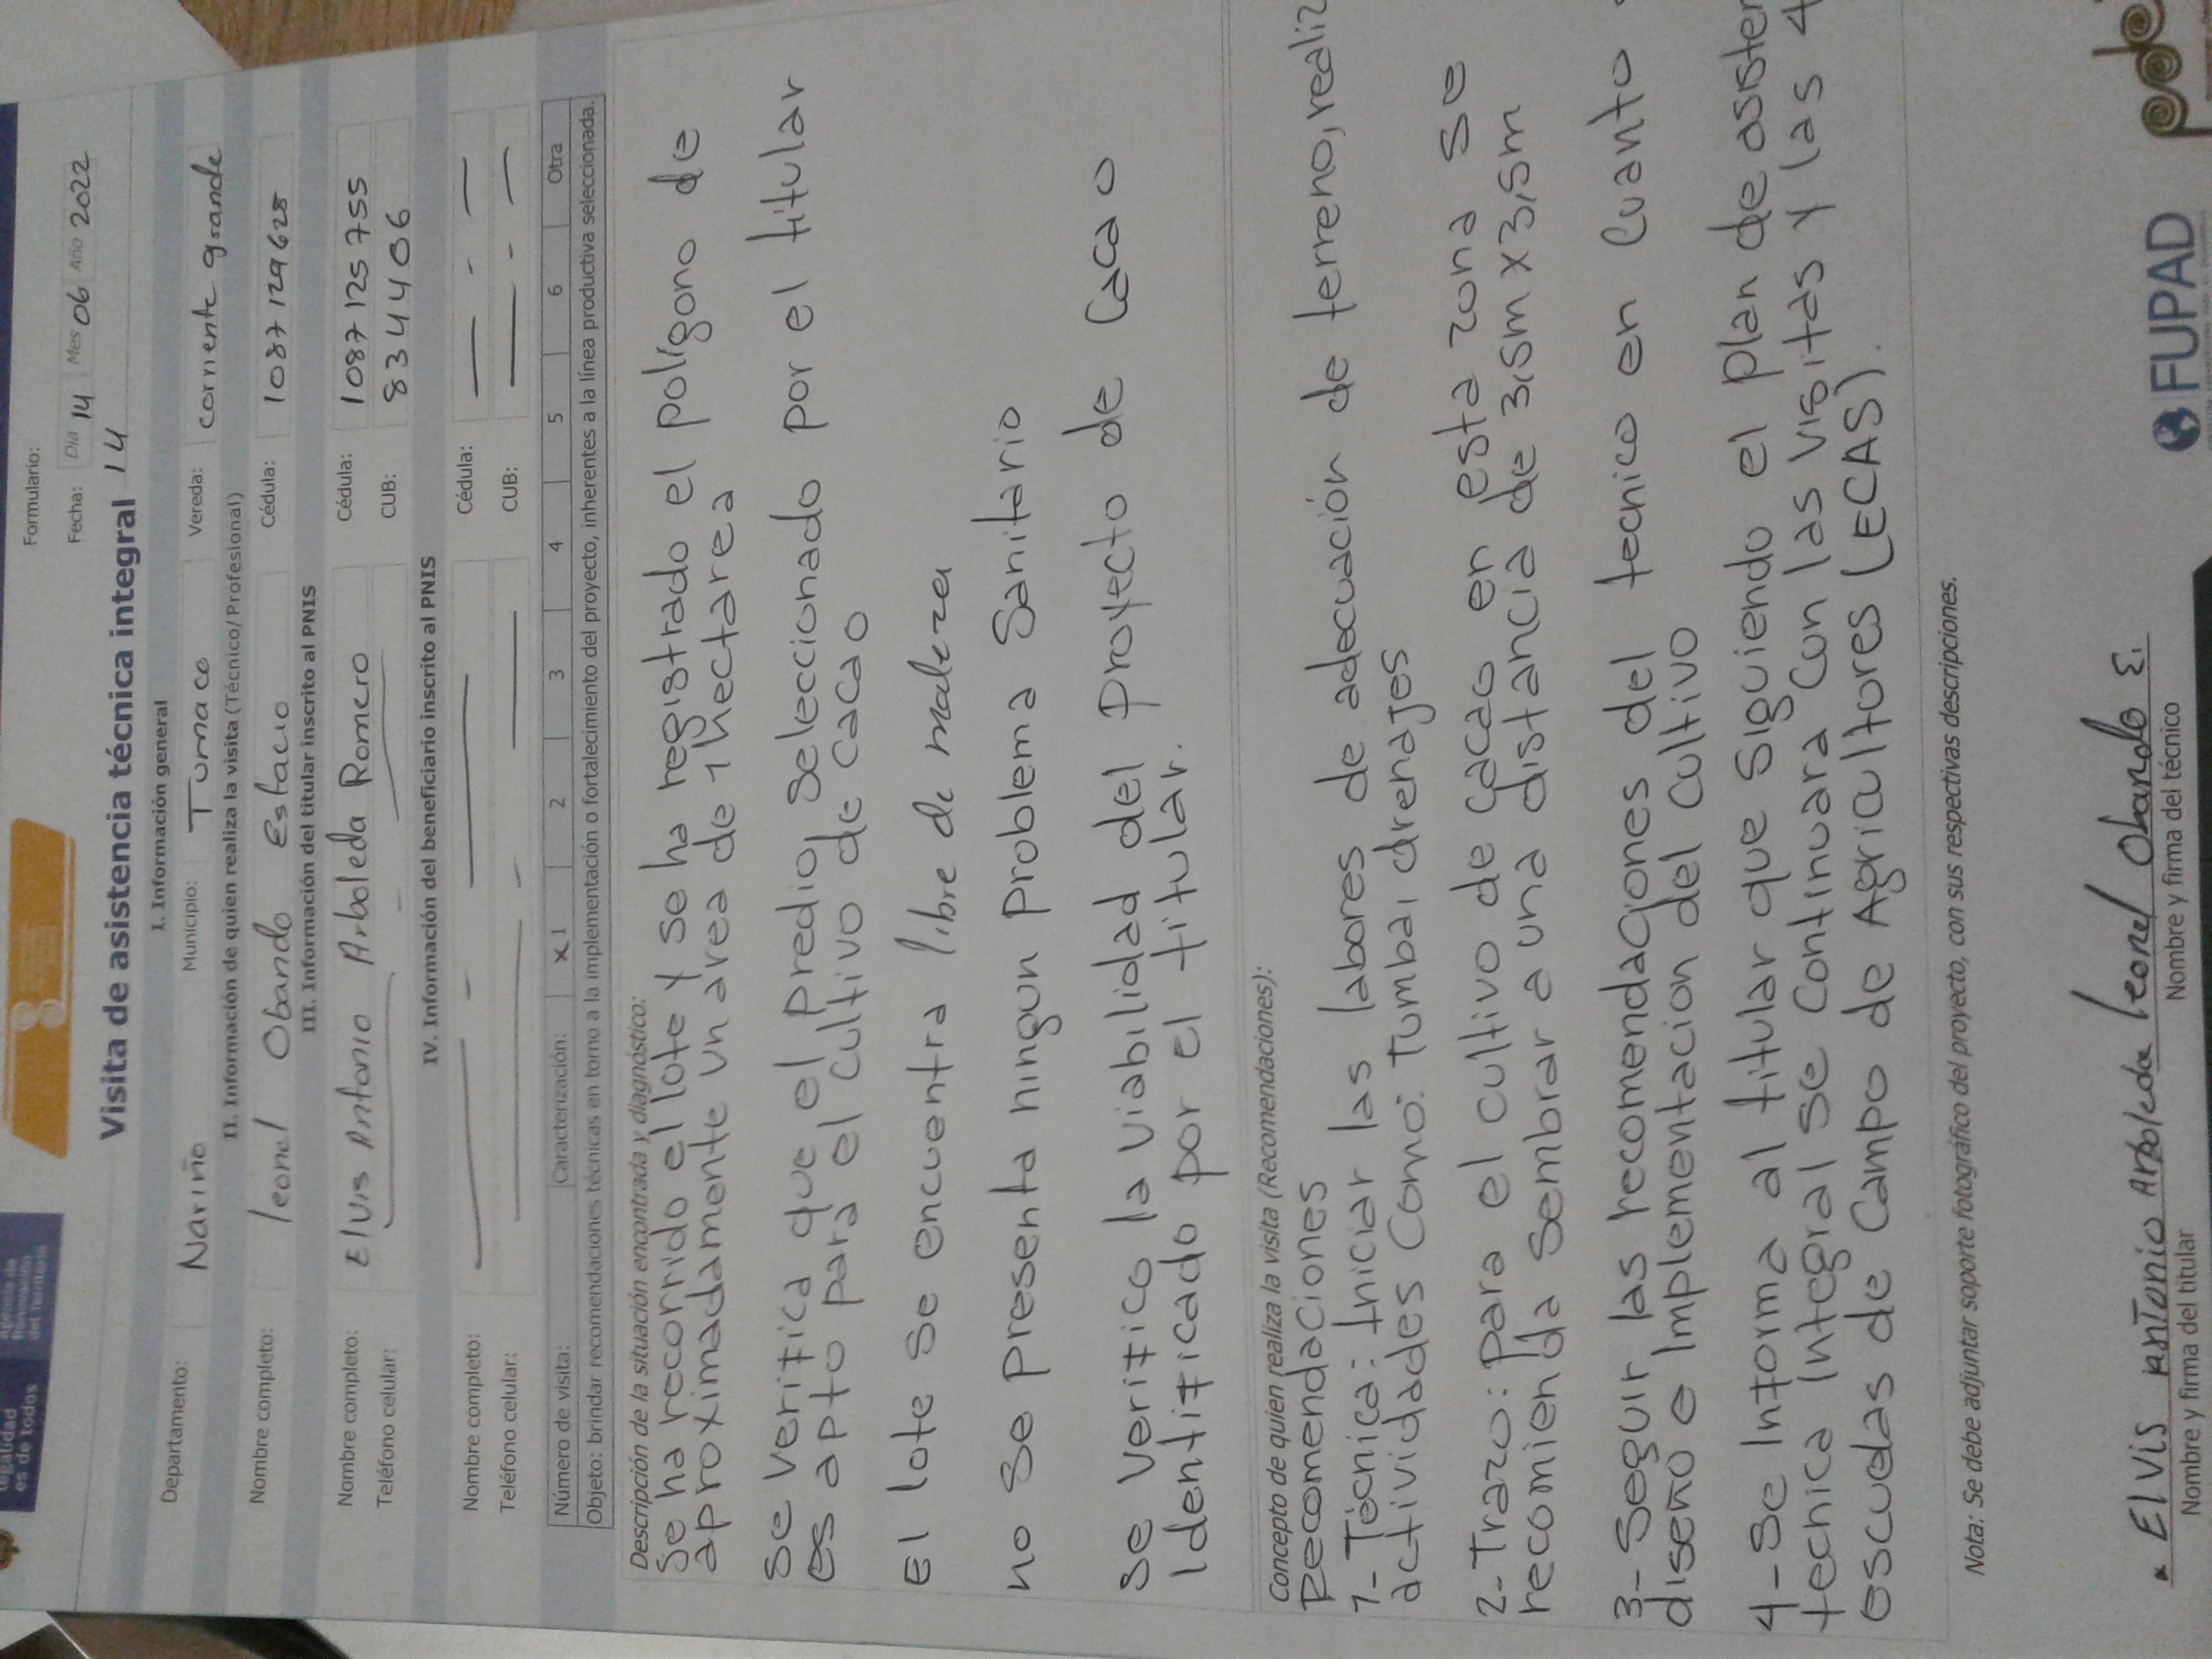 legalidad
es de todos
Agencia de
Renovación
del Territorio
Formulario:
Fecha: Día 14 Mes 06 Año 2022
Visita de asistencia técnica integral 14
I. Información general
Departamento: Nariño Municipio: Tumaco Vereda: corriente grande
II. Información de quien realiza la visita (Técnico/Profesional)
Nombre completo: leonel Obando Estacio Cédula: 1087129628
III. Información del titular inscrito al PNIS
Nombre completo: Elvis Antonio Arboleda Romero Cédula: 1087125755
Teléfono celular: CUB: 8344406
IV. Información del beneficiario inscrito al PNIS
Nombre completo: Cédula:
Teléfono celular: CUB:
Número de visita: Caracterización: X 1 2 3 4 5 6 Otra
Objeto: brindar recomendaciones técnicas en torno a la implementación o fortalecimiento del proyecto, inherentes a la línea productiva seleccionada.
Descripción de la situación encontrada y diagnóstico:
Se ha recorrido el lote y se ha registrado el polígono de
aproximadamente un area de 1 hectarea
Se verifica que el predio, seleccionado por el titular
es apto para el cultivo de cacao
El lote se encuentra libre de maleza
no se presenta ningun problema Sanitario
Se verifico la viabilidad del proyecto de cacao
identificado por el titular.
Concepto de quien realiza la visita (Recomendaciones):
Recomendaciones
1- Técnica: Iniciar las labores de adecuación de terreno, realiz
actividades como: Tumba, drenajes
2- Trazo: para el cultivo de cacao en esta zona se
recomienda sembrar a una distancia de 3,5m x 3,5m
3- Seguir las recomendaciones del tecnico en cuanto
diseño e implementacion del cultivo
4- Se informa al titular que siguiendo el plan de asisten
tecnica integral se continuara con las visitas y las 4
escuelas de campo de Agricultores (ECAS).
Nota: Se debe adjuntar soporte fotográfico del proyecto, con sus respectivas descripciones.
* Elvis Antonio Arboleda leonel Obando E.
Nombre y firma del titular Nombre y firma del técnico
FUPAD